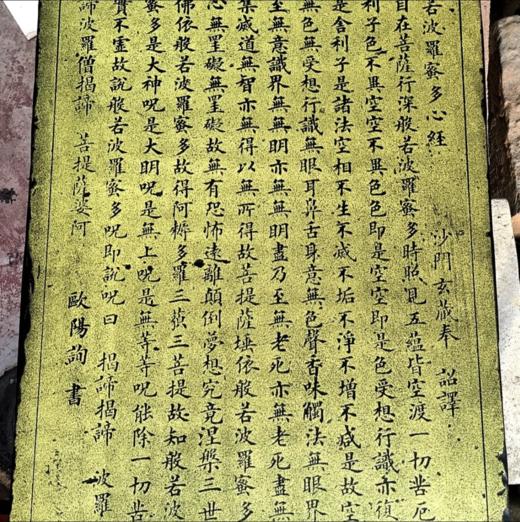 若波羅蜜多心經 沙門玄蔵奉 詔譯
自在菩薩行深般若波羅蜜多時照見五蘊皆空渡一切苦厄
利子色不異空空不異色色即是空空即是色受想行識亦復
是舍利子是諸法空相不生不滅不垢不淨不增不減是故空
無色無受想行識無眼耳鼻舌身意無色聲香味觸法無眼界
至無意識界無無明亦無無明盡乃至無老死亦無老死盡無
集滅道無智亦無得以無所得故菩提薩埵依般若波羅蜜多
心無罣礙無罣礙故無有恐怖遠離顛倒夢想究竟涅槃三世
佛依般若波羅蜜多故得阿耨多羅三藐三菩提故知般若波
蜜多是大神呪是大明呪是無上呪是無等等呪能除一切苦
實不虛故說般若波羅蜜多呪即說呪曰 揭諦揭諦 波羅
諦波羅僧揭諦 菩提薩婆阿
歐陽詢 書